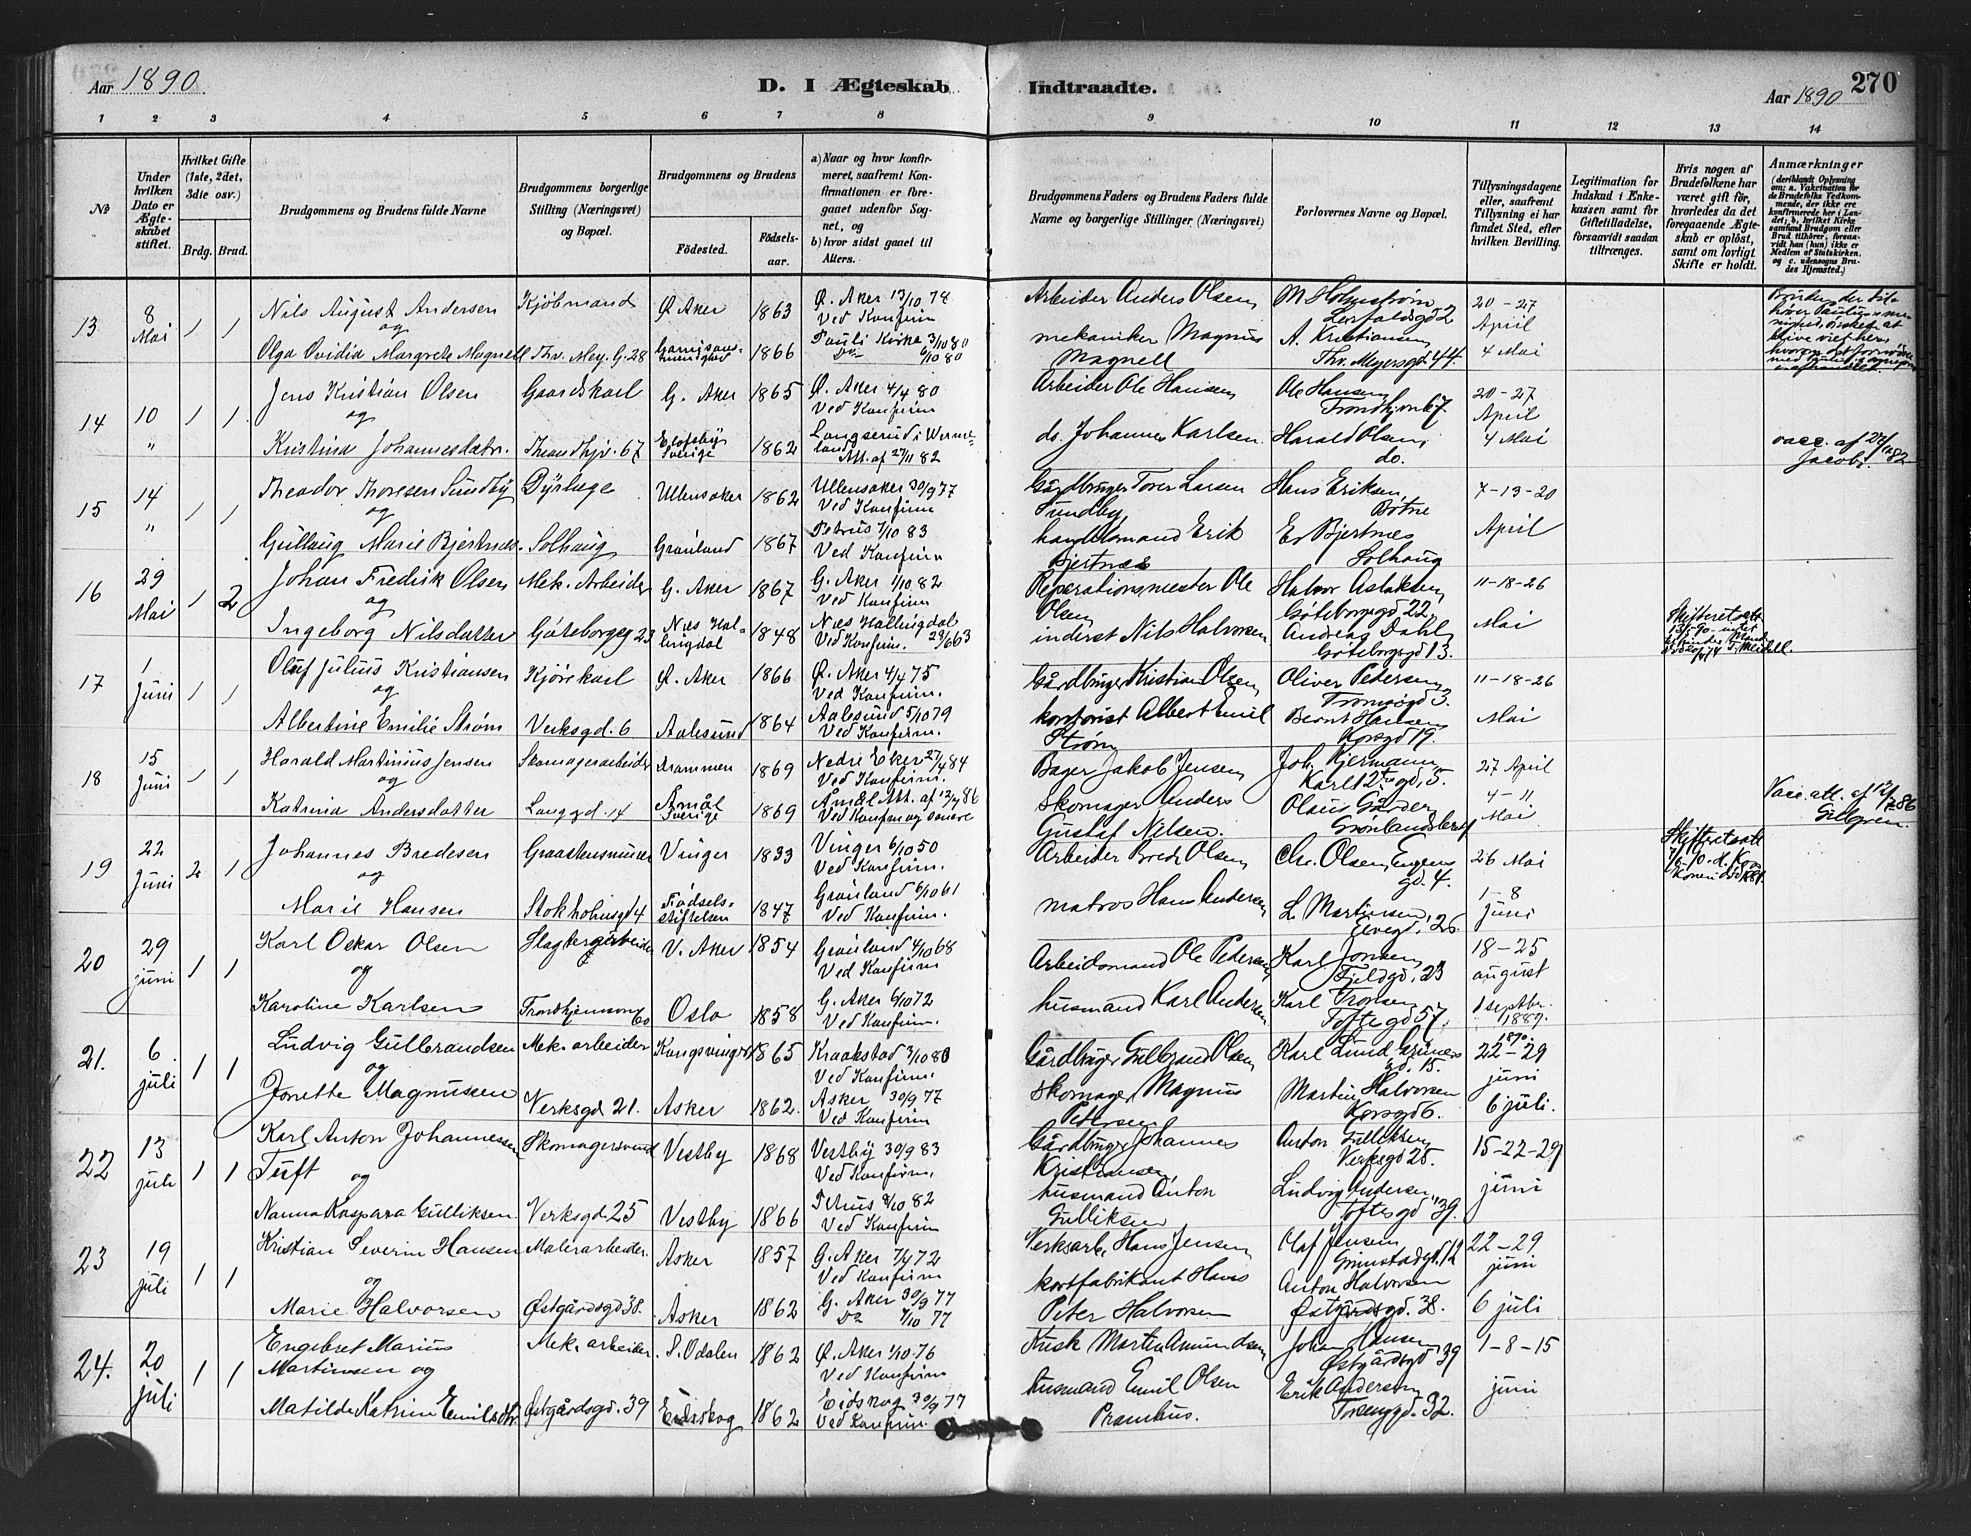 Aar 1890
D. I Ægteskab Indtraadte.
270
Aar 1890
1 2 3 4 5 6 7 8 9 10 11 12 13 14
No
Under hvilken Dato er Ægteskabet stiftet.
Hvilket Gifte (1ste, 2det, 3die osv.)
Brdg. Brud.
Brudgommens og Brudens fulde Navne
Brudgommens borgerlige Stilling (Næringsvei) og Bopæl.
Brudgommens og Brudens
Födested. Födselsaar.
a) Naar og hvor konfirmeret, saafremt Konfirmationen er foregaaet udenfor Sognet, og
b) hvor sidst gaaet til Alters.
Brudgommens Faders og Brudens Faders fulde Navne og borgerlige Stillinger (Næringsvei)
Forlovernes Navne og Bopæl.
Tillysningsdagene eller, saafremt Tillysning ei har fundet Sted, efter hvilken Bevilling.
Legitimation for Indskud i Enkekassen samt for Giftetilladelse, forsaavidt saadan tiltrænges.
Hvis nogen af Brudefolkene har været gift för, hvorledes da det foregaaende Ægteskab er oplöst, samt om lovligt Skifte er holdt.
Anmærkninger (deriblandt Oplysning om: a. Vaccination for de Brudefolks Vedkommende, der ikke ere konfirmerede her i Landet; b. hvilket Kirkesamfund Brudgom eller Brud tilhörer, forsaavidt han (hun) ikke er Medlem af Statskirken, og c. udensogns Brudes Hjemsted.)
13 8 Mai 1 1
Nils August Andersen Kjøbmand Ø. Aker 1863 Ø. Aker 13/10 78 Ved Konfirm
og
Olga Ovidia Margrete Magnell Thv. Mey. G. 28 1866 Pauli Kirke 3/10 80
Arbeider Anders Olsen M Holmstrøm 20-27 April
mekaniker Magnus Magnell A. Kristiansen Thv. Meyersgd 44. 4 Mai
14 10 " 1 1
Jens Kristian Olsen Gaardskarl G. Aker 1865 Ø. Aker 4/4 80 Ved Konfirm
og
Kristina Johannesdatr. Trondhjv. 67 Sverige 1862 Att. af 27/11 82
Arbeider Ole Hansen Ole Hansen Trondhjemv 67. 20-27 April
do. Johannes Karlsen Harald Olsen do. 4 Mai
vacc. af
15 14 " 1 1
Theodor Thoresen Sundby Dyrlæge Ullensaker 1862 Ullensaker 30/9 77 Ved Konfirm
og
Gullaug Marie Bjertnæs Solhaug Grønland 1867 Petrus 7/10 83 Ved Konfirm
Gårdbruger Torer Larsen Sundby Hans Eriksen, Botne 7-13-20
handelsmand Erik Bjertnæs E. Bjertnæs Solhaug April
16 29 Mai 1 2
Johan Fredrik Olsen Mek. Arbeider G. Aker 1867 G. Aker 1/10 82 Ved Konfirm
og
Ingeborg Nilsdatter Göteborgsg 23 Næs Hallingdal 1848 Næs Hallingdal Ved Konfirm.
Reperationsmester Ole Olsen Halvor Aslaksen, Göteborgsgd 22, 11-18-26
inderst Nils Halvorsen Andreas Dahl Göteborgsgd 13. Mai
17 1 Juni 1 1
Oluf Julius Kristiansen Kjørekarl Ø. Aker 1866 Ø. Aker 4/4 75 Ved Konfirm.
og
Albertine Emilie Strøm Verksgd. 6 Aalesund 1864 Aalesund 5/10 79 Ved Konfirm.
Gårdbruger Kristian Olsen Oliver Pedersen Tromsøgd 3. 11-18-26
kontorist Albert Emil Strøm Bernt Hansen Korsgd 19. Mai
18 15 Juni 1 1
Harald Martinius Jensen Skomagerarbeider Drammen 1869 Nedre Eker 27/4 84 Ved Konfirm.
og
Katrina Andersdatter Langgd. 14 Åmål Sverige 1869
Bager Jakob Jensen Joh. Kjermann, Karl 12tes gd, 5. 27 April
Skomager Anders Gustaf Nilsen. 4-11 Mai
19 22 Juni 2 1
Johannes Bredesen Graastensmurer Vinger 1833 Vinger 6/10 50 Ved Konfirm.
og
Marie Hansen Stokholmsgd 4 Födselsstiftelsen 1847 Grønland 6/10 61 Ved Konfirm.
Arbeider Brede Olsen Chr. Olsen, Eugens gd. 4. 26 Mai
matros Hans Andersen L. Martinsen, Elvegd, 26. 1-8 Juni
20 29 juni 1 1
Karl Oskar Olsen Slagtergarbeider V. Aker 1854 Grønland 4/10 68 Ved Konfirm
og
Karoline Karlsen Trondhjemsv 60 Oslo 1858 G. Aker 6/10 72 Ved Konfirm.
Arbeidsmand Ole Pedersen Karl Jonsen, Fjeldgd, 23 18-25 august
husmand Karl Andersen Karl Tronsen Toftegd 57. 1 septbr. 1889.
21. 6 juli 1 1
Ludvig Gulbrandsen Mek. arbeider Kongsvinger 1865 Kraakstad 3/10 80 Ved Konfirm.
og
Jonette Magnussen Verksgd 21. Asker 1862. Asker 30/9 77 Ved Konfirm
Gårdbruger Gulbrand Olsen Karl Lund Grüners gd. 15. 1890. 22-29 juni
Skomager Magnus Petersen Martin Halvorsen Korsgd 6. 6 juli.
22 13 juli 1 1
Karl Anton Johannessen Tuft og Skomagersvend Vestby 1868 Vestby 30/9 83 Ved Konfirm.
Nanna Kaspara Gulliksen Verksgd. 25 Vestby 1866 Petrus 8/10 82 Ved Konfirm
Gårdbruger Johannes Kristiansen Anton Gulliksen, Verksgd 25. 15-22-29
husmand Anton Gulliksen Ludvig Andersen, Toftesgd 39. juni
23 19 juli 1 1
Kristian Severin Hansen Malerarbeider. Asker 1857 G. Aker 7/4 72 Ved Konfirm
og
Marie Halvorsen Østgårdsgd 38. Asker 1862 G. Aker 30/9 77 Do 7/10 77
Verksarb. Hans Jensen Olaf Jensen Grimstadgd. 12 22-29 juni
kortfabrikant Hans Peter Halvorsen Anton Halvorsen Østgårdsgd. 38. 6 juli
24. 20 juli 1 1
Engebret Marius Martinsen og Mek. arbeider. S. Odalen 1862 Ø. Aker 1/10 76 Ved Konfirm
Matilde Katrine Emilsdtr. Østgårdsgd. 39 Eidskog 1862 Eidskog 30/9 77 Ved Konfirm.
Kusk Martin Amundsen Johan Hansen, Østgårdsgd 39 1-8-15
husmand Emil Olsen Pramhus. Erik Anderson Torsenggd. 32. juni